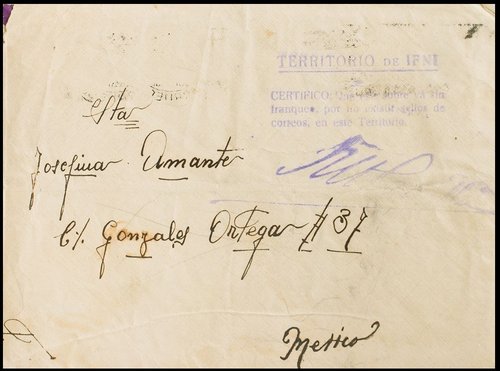 TERRITORIO DE IFNI
CERTIFICO: Que este sobre va sin
franqueo, por no existir sellos de
correos, en este Territorio.
Srta
Josefina Amante
C/. Gonzales Ortega # 37
Messico